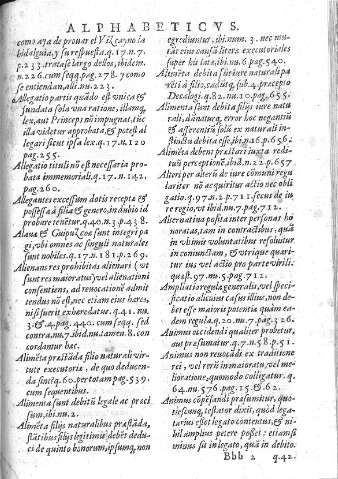 ALPHABETICVS.
como aya de prouar el Vizcayno la
hidalguia, y su respuesta.q.17.n.7.
p.233.tratase largo dellos, ibidem.
n.226.cum seqq.pag.278. y como
se entiendan.ali.nu.223.
Allegatio partis quãdo est vnica &
fundata sola vna ratione, illamq́,
lex, aut Princeps nõ impugnat, tũc
illa videtur approbata, & potest al
legari sicut ipsa lex.q.17.n.120
pag.255.
Allegatio tituli nõ est necessaria proba
ta immemoriali.q.17.n.142.
pag.260.
Allegantes excessum dotis recepta &
possessa à filia & genero, in dubio id
probare tenẽtur.q.40.n.3.p.438.
Alaua & Guipuzcoa sunt integri pa
gi, vbi omnes ac singuli naturales
sunt nobiles.q.17.n.181.p.269.
Alienans res prohibitas alienari (vt
sunt res maioratus) vel alienationi
consentiens, ad reuocationẽ admit
tendus nõ est, nec etiam eius hæres,
nisi fuerit exhæredatus.q.41.nu.
3.&.4.pag.440.cum seqq. sed
contra nu.7.ibid.nu.tamen.8.con
cordantur hæc.
Alimẽta præstãda filio naturali vir-
tute executoria, de quo deducen-
da sint.q.60.per totam pag.539.
cum sequentibus.
Alimenta sunt debitũ legale ac præci
suum, ibi.nu.2.
Alimẽta filijs naturalibus præstãda,
stãtibus filijs legitimis debẽt dedu-
ci de quinto bonorum, ipsumq́, non
egrediuntur, ibi.num.3. nec mu-
tãt eius causã literæ executoriales
super his latæ, ibi.nu.6.pag.540.
Alimẽta debita sũt iure naturali pa-
rẽti à filio, eadẽq́, sub.4.præcepto
Decalogi.q.82.nu.10.pag.655.
Alimenta sunt debita filijs iure natu
rali, dãnatuq́, error hoc negantiũ
& asserentiũ solũ ex naturali in-
stinctu debita esse, ibi.pag.656.
Alimẽta debent præstari iuxta redi-
tuũ perceptionẽ, ibid.n.22.p.657
Alteri per alterũ de iure cõmuni regu
lariter nõ acquiritur actio nec obli
gatio.q.97.n.2.p.711.secus de iu
re regio, vt ibid.nu.7.pag.712.
Alternatiua posita inter personas ho
noratas, tam in contractibus, quã
in vltimis voluntatibus resoluitur
in coniunctam, & vtrique quæri-
tur ius vel actio pro parte virili.
quæst.97.nu.5.pag.712.
Ampliatio regulæ generalis, vel speci
ficatio alicuius casus illius, non de-
bet esse maioris potentia quàm ea-
dem regula.q.20.nu.7.pag.326.
Animus occidendi qualiter probetur,
aut præsumatur.q.7.n.58.p.51.
Animus non reuocãdi ex traditione
rei, vel rerũ immaturatu, vel me-
lioratione, quomodo collidatur.q.
64.nu.576.pag.15.&.62.
Animus cõpensãdi præsumitur, quo-
tiescunq́, testator dixit, quòd lega-
tarius esset legato contentus, & ni-
hil amplius petere posset: etiamsi
minus sit in legato, quã in debito.
Bbb 2 q.42.